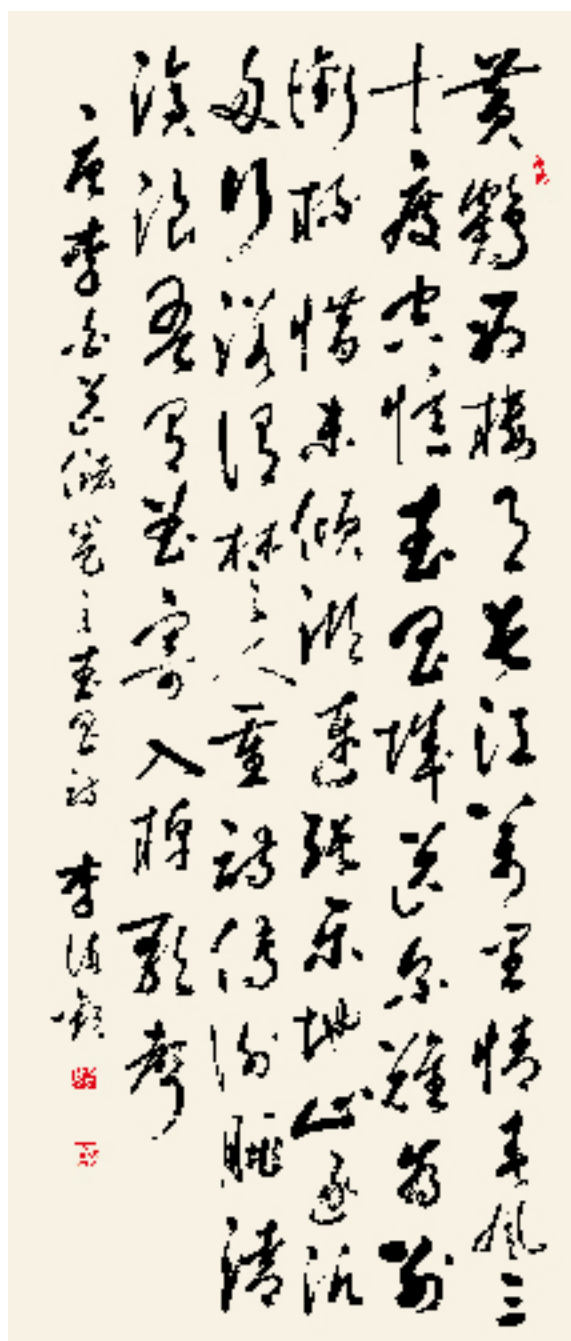 黄鶴西樓月長江萬里情春風三
十度空憶武昌城送爾難爲别
銜杯惜未傾湖連張樂地山逐汎
舟行諾謂楚人重詩傳謝朓清
滄浪吾有曲寄入棹歌聲
唐李白送儲邕之武昌詩 李